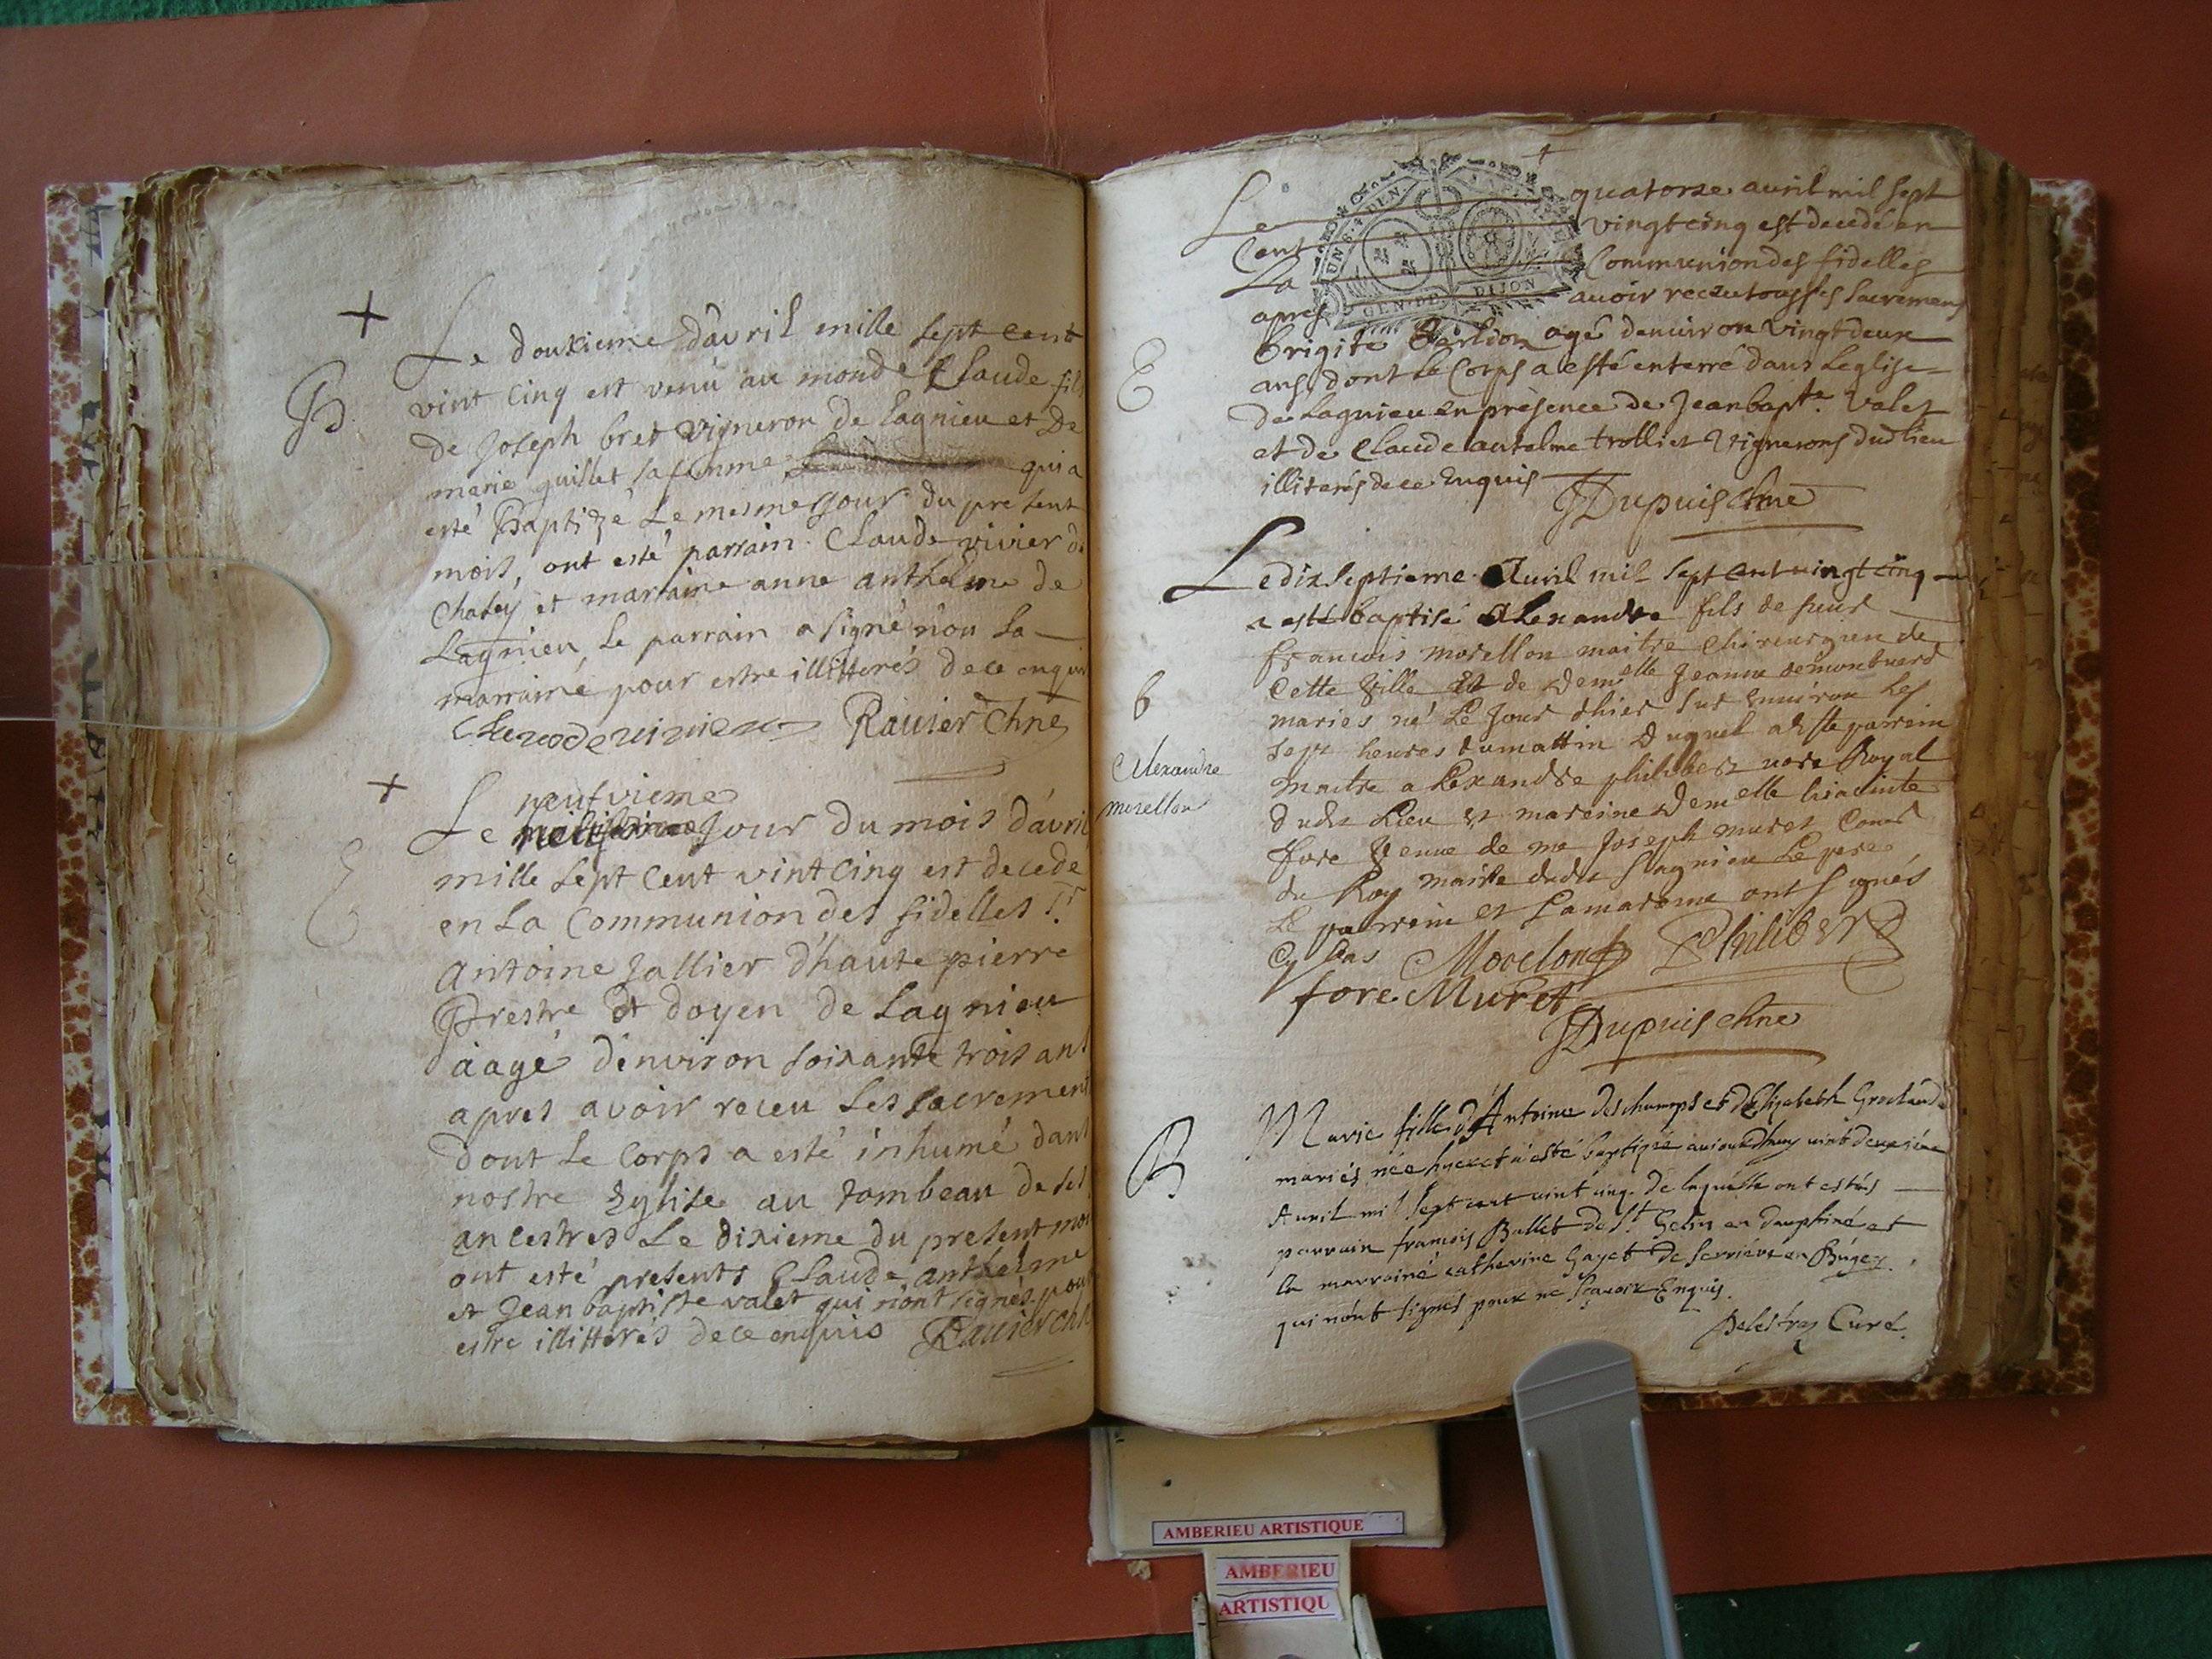 +
B
Le douxieme d'avril mille sept cent
vint cinq est venu au monde Claude fils
de Joseph bret vigneron de Lagnieu et De
marie guillet sa femme qui a
esté Baptizé Le mesme Jour du present
mois, ont esté parrain Claude vivier de
Chaley et marraine anne anthelme de
Lagnieu Le parrain a signé non La
marraine pour estre illitterés de ce enquis
Ravier Chne
+
E
neufvieme
Le Jour du mois d'avril
mille sept cent vint cinq est decede
en La Communion des fidelles Sr
Antoine Jallier d'haute pierre
Prestre et doyen de Lagnieu
aagé d'environ soixante trois ans
apres avoir receu Les sacrement
dont Le Corps a esté inhumé dans
nostre Eglise au tombeau de ses
ancestres Le dixieme du present mois
ont esté presents Claude anthelme
et Jean baptiste valet qui n'ont signés pour
estre illitterés de ce enquis Ravier chne
4
GEN. DE DIJON
Le quatorze avril mil sept
Cent vingt cinq est decedé en
La Communion des fidelles
apres avoir receu tous ses sacremens
E
brigite agé denviron vingt deux
ans dont Le Corps a esté enterré dans Leglise
de Lagnieu en présence de Jean bapte valet
et de Claude antelme trolliet vignerons dud lieu
illiterés de ce Enquis
JDupuis chne
Le dix septieme Avril mil sept cent vingt cinq
a esté baptisé Alexandre fils de sieur
francois morellon maitre chirurgien de
Cette ville et de demelle Jeanne demontuerd
b
mariés né Le Jour d'hier sur Environ Les
sept heures du mattin Duquel a este parrein
Alexandre
maitre alexandre philibert nore Royal
morellon
dudit Lieu et mareine demelle hiacinte
fore veuve de me Joseph muret Concr
du Roy maire dudit Lagnieu Le pere
Le parrein et La maraine ont signés
Morelon Philibert
fore Muret
JDupuis chne
B
Marie fille d'Antoine deschamps et d'Elizabeth
mariés née hyer et a esté baptizée aujourdhuy vint deuxieme
Avril mil sept cent vint cinq. De laquelle ont estés
parrain francois Ballet de St Gelin en dauphiné et
la marrainé catherine Gayet de serriéve en Bugey.
qui n'ont signés pour ne sçavoir Enquis.
Delestraz Curé.
AMBERIEU ARTISTIQUE
AMBERIEU
ARTISTIQU